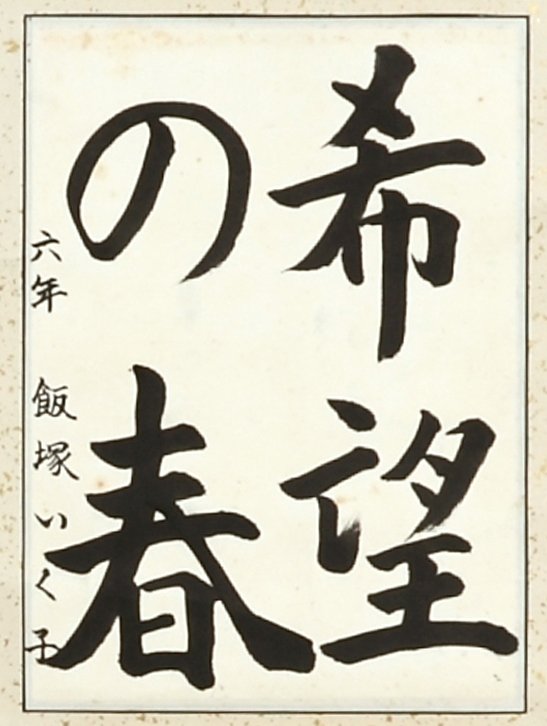 希望
の春
六年 飯塚いく子